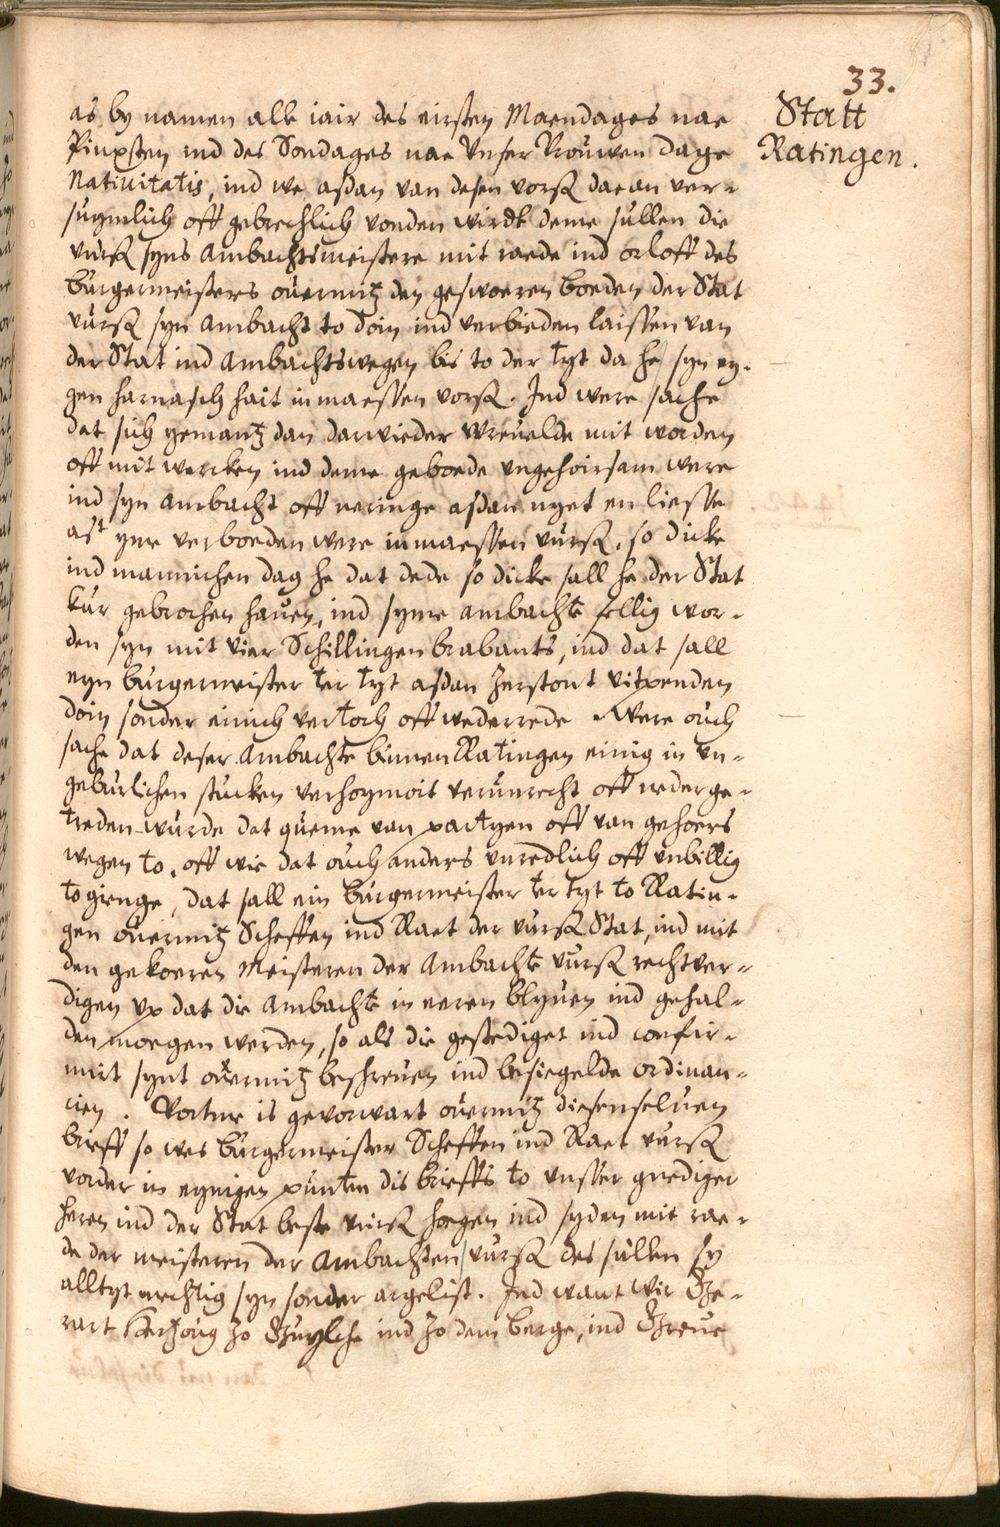 33.
Statt
Ratingen.
as by namen alle iair des eirsten Maendages nae
Pinxsten ind des Sondages nae Unser Vrouwen dage
Nativitatis, ind we asdan van desen vorß daean ver-
sugmlich off gebrechlich vonden wirdt deme sullen die
vurß syns Ambachtsmeistere mit raede ind orloff des
burgermeisters ouermitz den geswoeren boeden der Stat
vurß syn Ambacht to doin ind verbieden laissen van
der Stat ind Ambachtswegen bis to der tyt da he syn ey-
gen harnasch hait inmaessen vorß. Ind were sache
dat sich yemantz dan darwieder wreuelde mit worden
off mit wercken ind deme geboede ungehoirsam were
ind syn Ambacht off neringe asdan nyet en liesse
ast yme verboeden were inmaessen vurß, so dicke
ind mannichen dag he dat dede so dicke sall he der Stat
kur gebrochen hauen, ind syme ambachte fellig wor-
den syn mit vier Schillingen brabants, ind dat sall
eyn burgermeister ter tyt asdan zerstont uitpenden
doin sonder einich vertoch off wederrede. Were ouch
sache dat deser Ambachte binnen Ratingen einig in un-
geburlichen stucken verhoymoit verunrecht off nederge-
treden wurde dat queme van partyen off van gehoers
wegen to, off wie dat ouch anders unredlich off unbillig
to gienge, dat sall ein burgermeister ter tyt to Ratin-
gen ouermitz Scheffen ind Raet der vurß Stat, ind mit
den gekoeren Meisteren der Ambachte vurß rechtver-
digen up dat die Ambachte in eeren blyuen ind gehal-
den moegen werden, so als die gestediget ind confir-
mirt synt ouermitz beschreuen ind besiegelde ordinan-
cien. Vortme is gevorwart ouermitz diesenseluen
brieff so wes burgermeister Scheffen ind Raet vurß
vorder in eynigen punten dis brieffs to unsser gnediger
heren ind der Stat beste vurß hoegen ind syden mit rae-
de der meisteren der Ambachten vurß des sullen sy
alltyt mechtig syn sonder argelist. Ind want wir Ghe-
rart Hertzoug zo Guylche ind zo dem berge, ind Greue